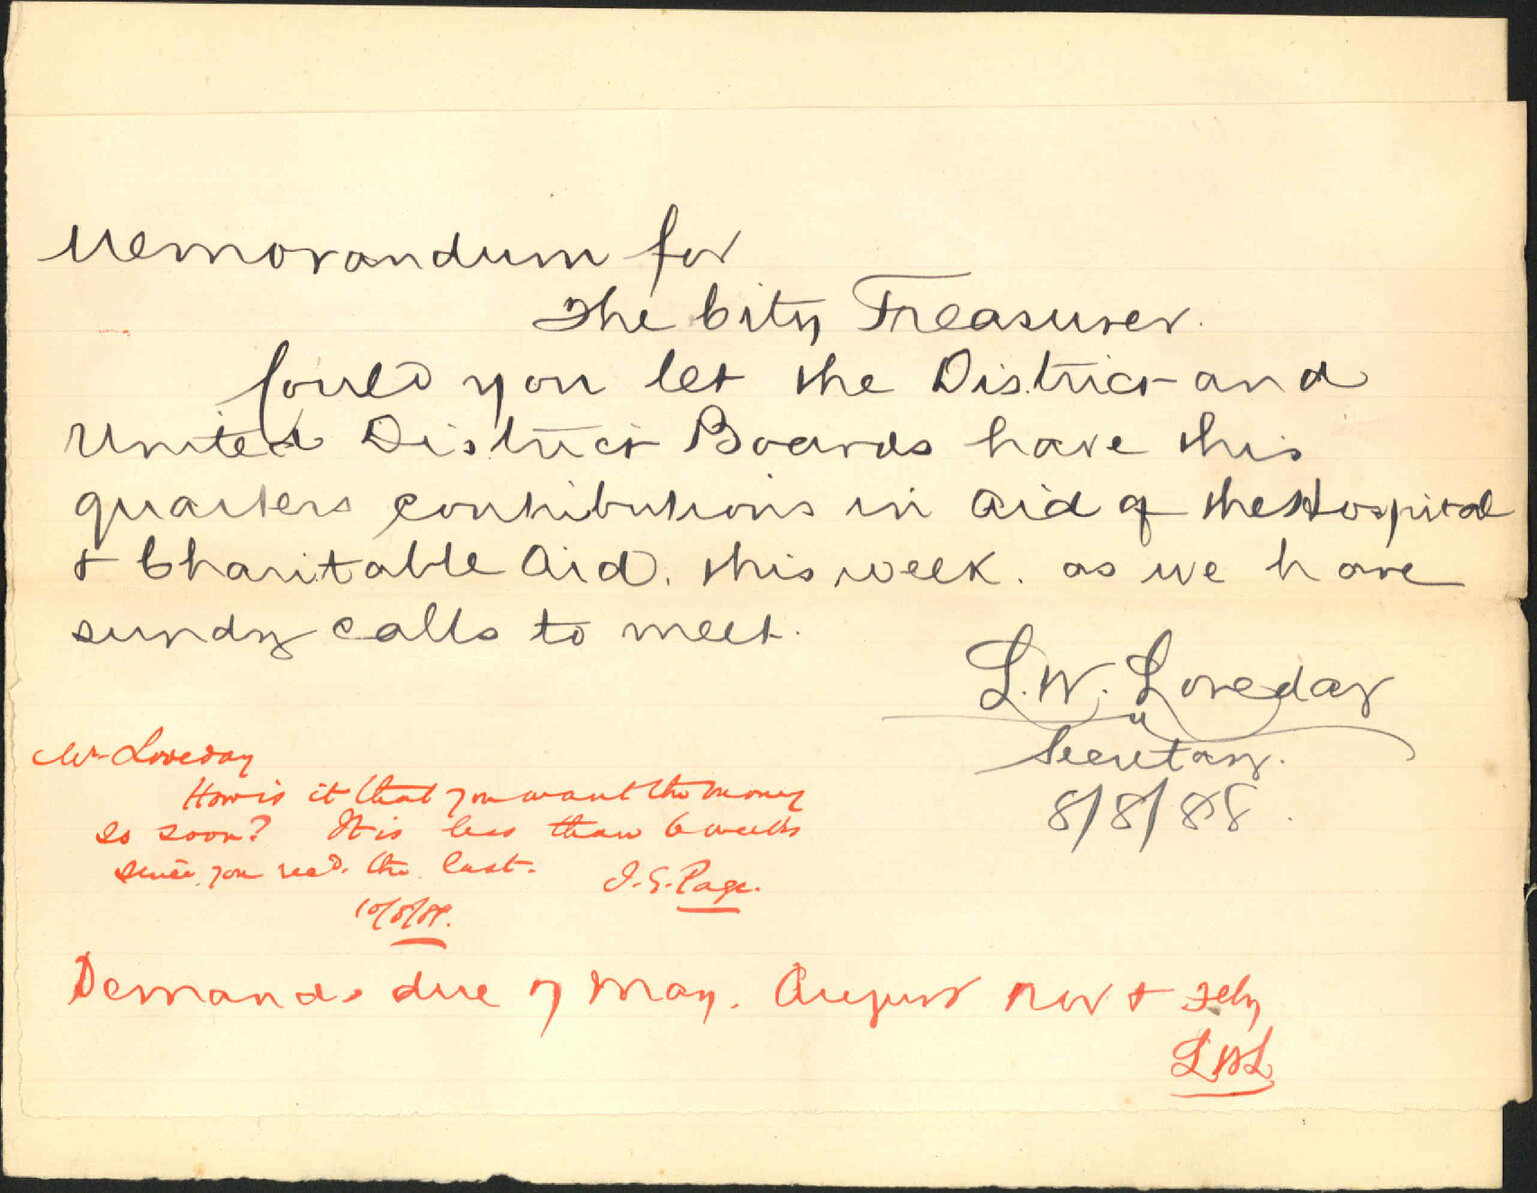 Memorandum for
The City Treasurer.
Could you let the District and
United District Boards have this
quarters contributions in aid of the Hospital
& Charitable Aid. this week. as we have
sundry calls to meet.
L. W. Loveday
Secretary.
8/8/88.
Mr Loveday
How is it that you want the money
so soon? It is less than 6 weeks
since you recd. the last.
J. G. Page.
10/8/88.
Demands due 7 May. August Nov & Feby
LWL